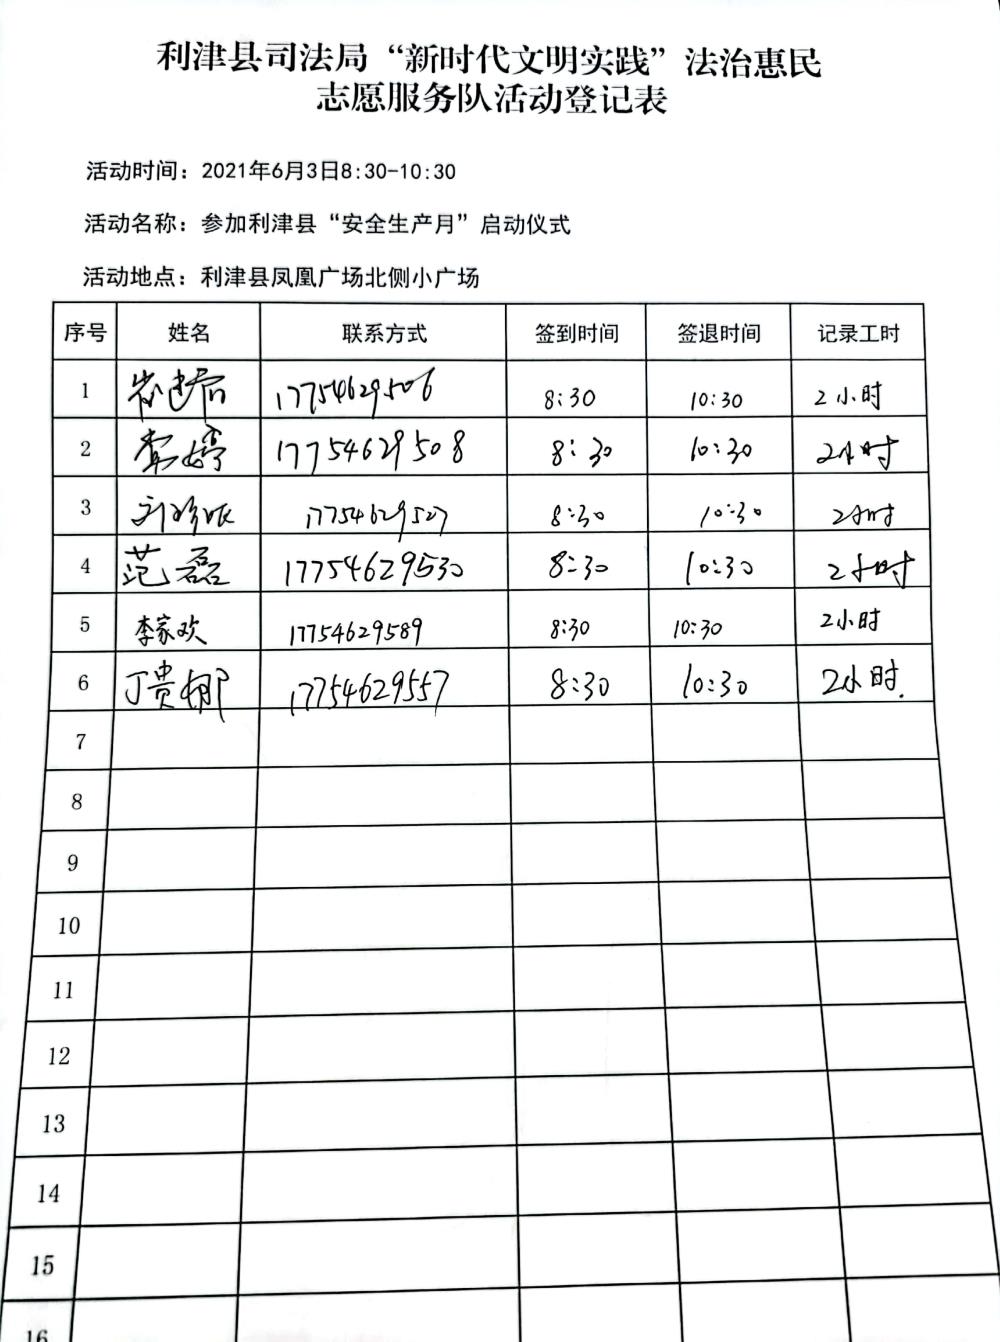 利津县司法局“新时代文明实践”法治惠民
志愿服务队活动登记表
活动时间：2021年6月3日8:30-10:30
活动名称：参加利津县“安全生产月”启动仪式
活动地点：利津县凤凰广场北侧小广场
序号 姓名 联系方式 签到时间 签退时间 记录工时
1 17754629506 8:30 10:30 2小时
2 婷 17754629508 8:30 10:30 2小时
3 刘 17754629527 8:30 10:30 2小时
4 范磊 17754629530 8:30 10:30 2小时
5 李家欢 17754629589 8:30 10:30 2小时
6 丁贵郁 17754629557 8:30 10:30 2小时.
7
8
9
10
11
12
13
14
15
16